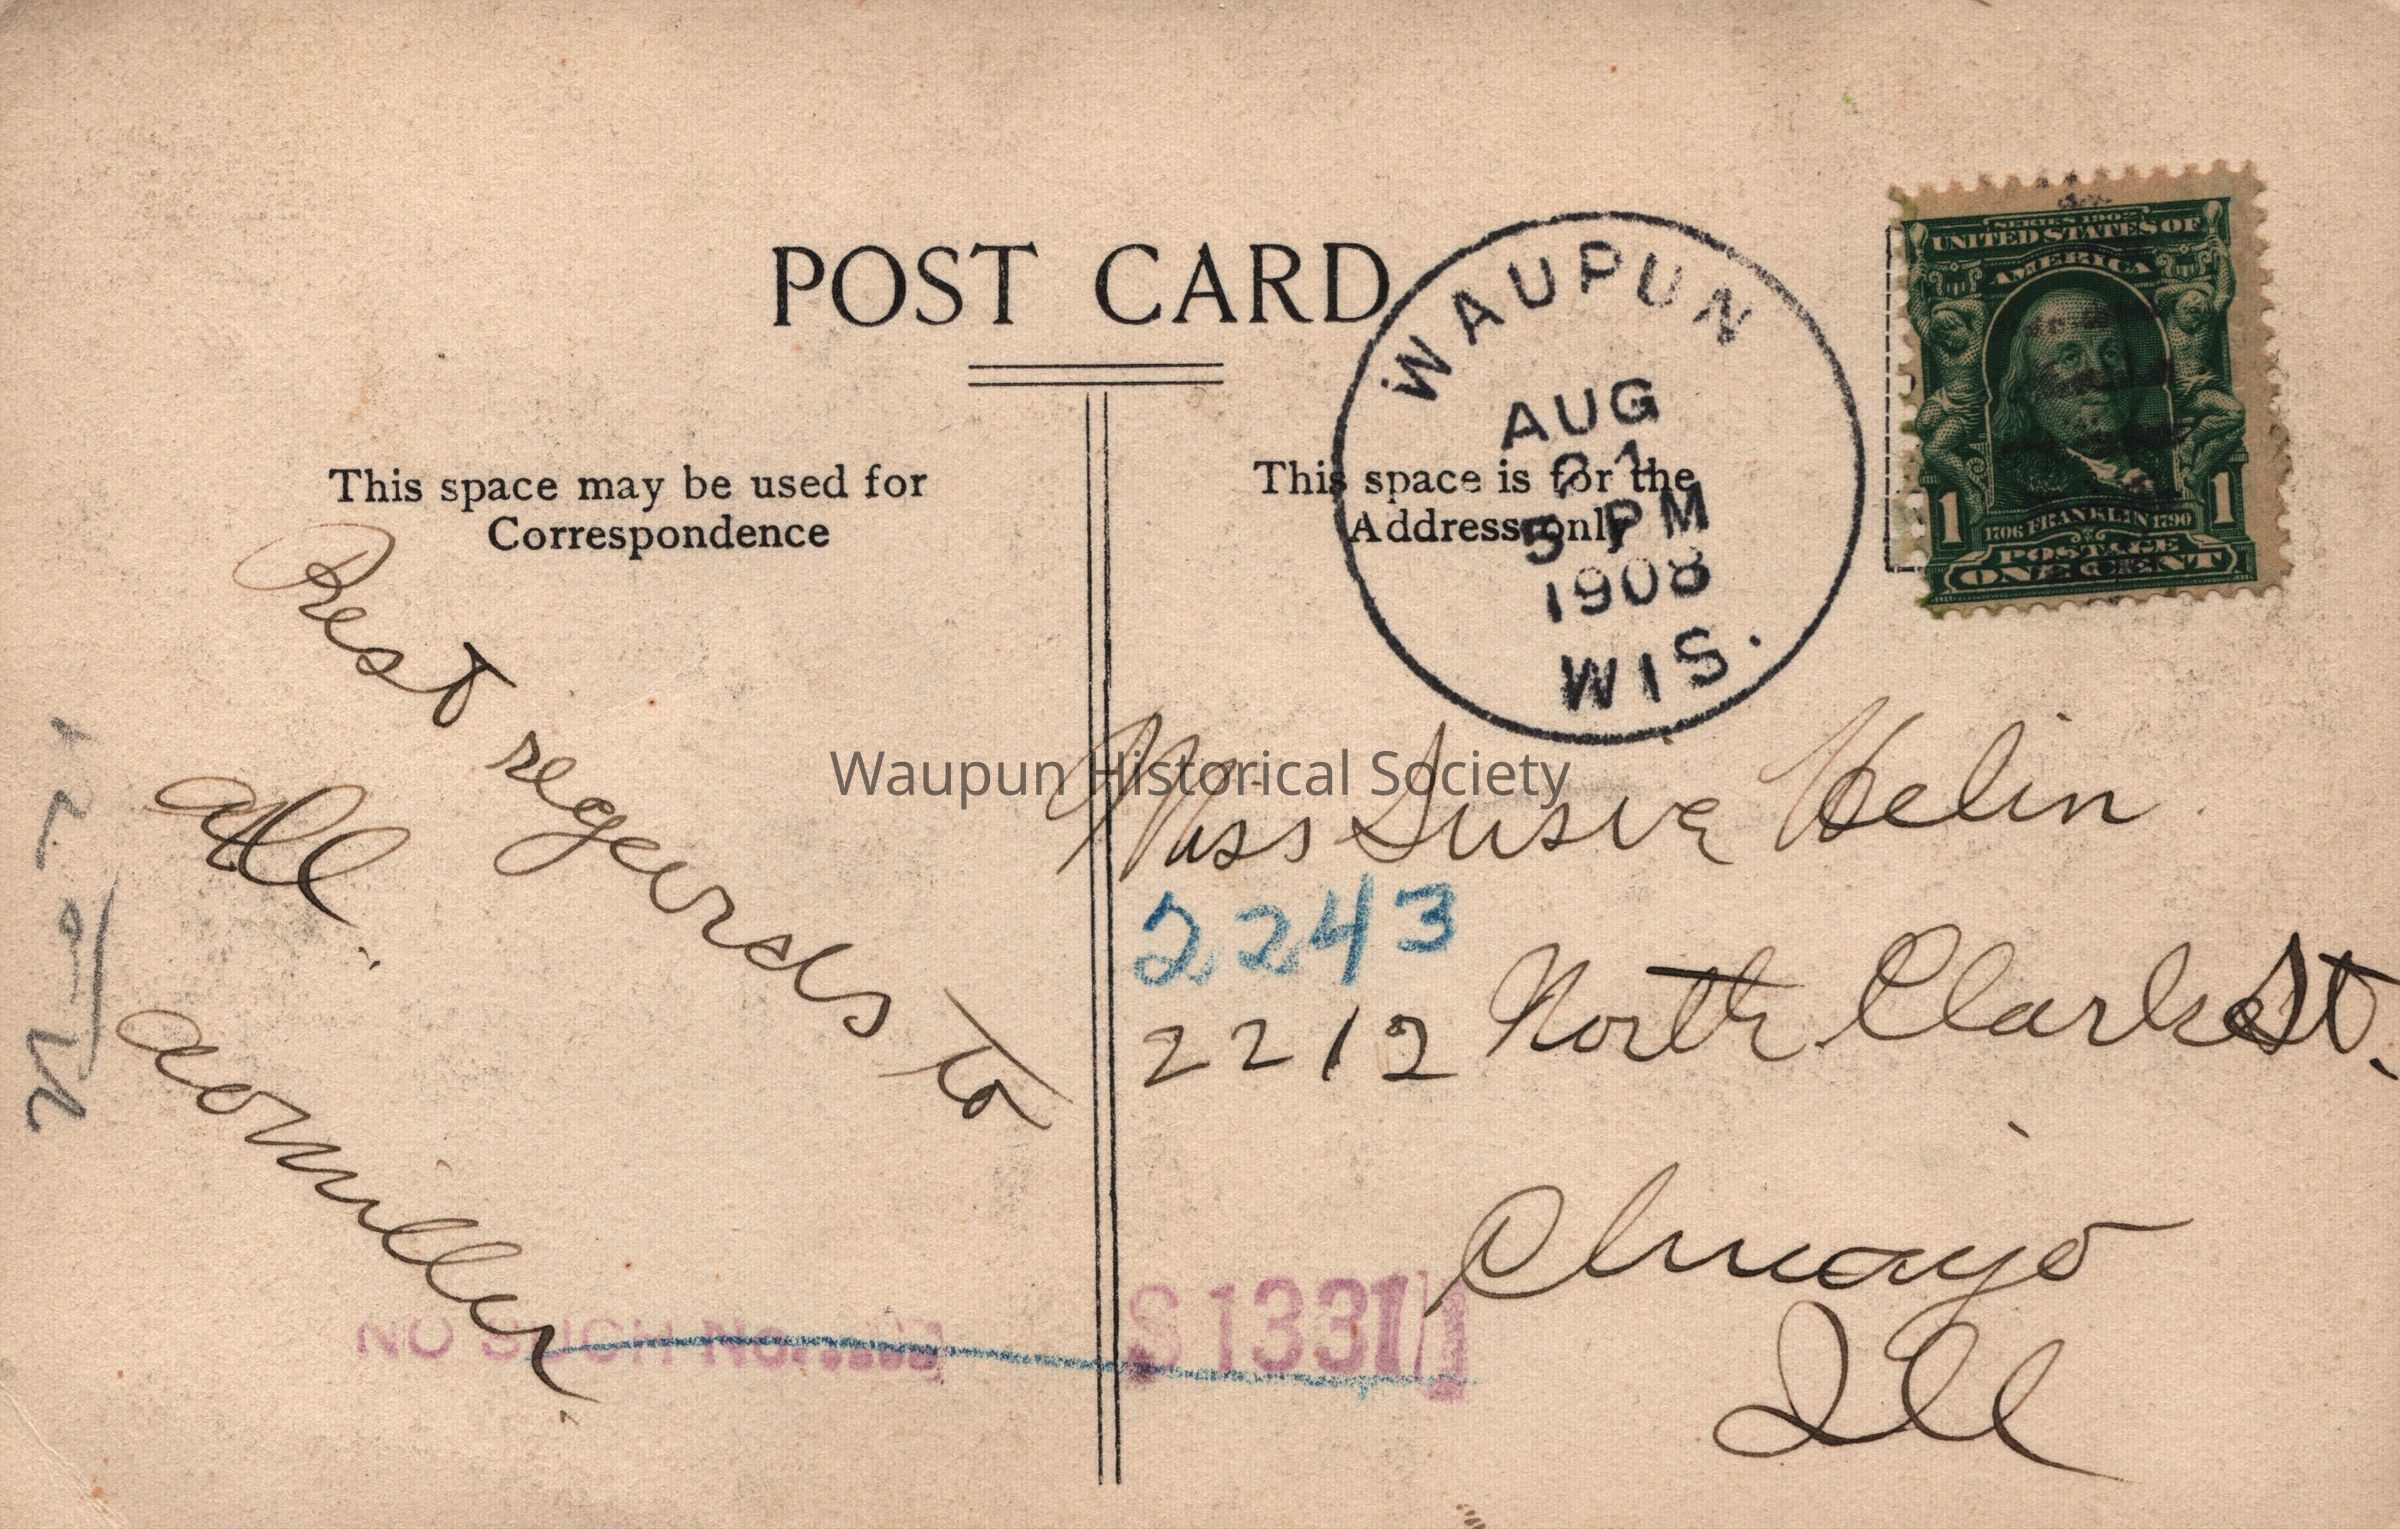 POST CARD
WAUPUN
AUG
21
5 PM
1908
WIS.
SERIES 1902
UNITED STATES OF
AMERICA
1 1706 FRANKLIN 1790 1
POSTAGE
ONE CENT
This space may be used for
Correspondence
This space is for the
Address only
Best regards to
all.
Waupun Historical Society
Miss Susie Helin
2243
2212 North Clark St.
Chicago
Ill
NO SUCH No.
S 1331